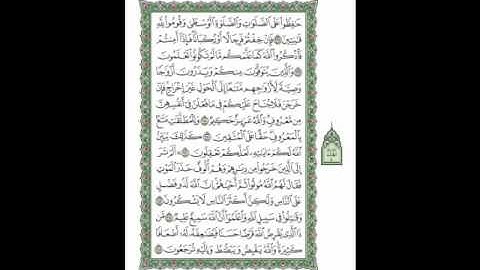 حَٰفِظُوا۟ عَلَى ٱلصَّلَوَٰتِ وَٱلصَّلَوٰةِ ٱلْوُسْطَىٰ وَقُومُوا۟ لِلَّهِ
قَٰنِتِينَ فَإِنْ خِفْتُمْ فَرِجَالًا أَوْ رُكْبَانًا فَإِذَآ أَمِنتُمْ
فَٱذْكُرُوا۟ ٱللَّهَ كَمَا عَلَّمَكُم مَّا لَمْ تَكُونُوا۟ تَعْلَمُونَ
وَٱلَّذِينَ يُتَوَفَّوْنَ مِنكُمْ وَيَذَرُونَ أَزْوَٰجًا
وَصِيَّةً لِّأَزْوَٰجِهِم مَّتَٰعًا إِلَى ٱلْحَوْلِ غَيْرَ إِخْرَاجٍ فَإِنْ
خَرَجْنَ فَلَا جُنَاحَ عَلَيْكُمْ فِى مَا فَعَلْنَ فِىٓ أَنفُسِهِنَّ
مِن مَّعْرُوفٍ وَٱللَّهُ عَزِيزٌ حَكِيمٌ وَلِلْمُطَلَّقَٰتِ مَتَٰعٌۢ
بِٱلْمَعْرُوفِ حَقًّا عَلَى ٱلْمُتَّقِينَ كَذَٰلِكَ يُبَيِّنُ
ٱللَّهُ لَكُمْ ءَايَٰتِهِۦ لَعَلَّكُمْ تَعْقِلُونَ أَلَمْ تَرَ
إِلَى ٱلَّذِينَ خَرَجُوا۟ مِن دِيَٰرِهِمْ وَهُمْ أُلُوفٌ حَذَرَ ٱلْمَوْتِ
فَقَالَ لَهُمُ ٱللَّهُ مُوتُوا۟ ثُمَّ أَحْيَٰهُمْ إِنَّ ٱللَّهَ لَذُو فَضْلٍ
عَلَى ٱلنَّاسِ وَلَٰكِنَّ أَكْثَرَ ٱلنَّاسِ لَا يَشْكُرُونَ
وَقَٰتِلُوا۟ فِى سَبِيلِ ٱللَّهِ وَٱعْلَمُوٓا۟ أَنَّ ٱللَّهَ سَمِيعٌ عَلِيمٌ
مَّن ذَا ٱلَّذِى يُقْرِضُ ٱللَّهَ قَرْضًا حَسَنًا فَيُضَٰعِفَهُۥ لَهُۥٓ أَضْعَافًا
كَثِيرَةً وَٱللَّهُ يَقْبِضُ وَيَبْصُۜطُ وَإِلَيْهِ تُرْجَعُونَ